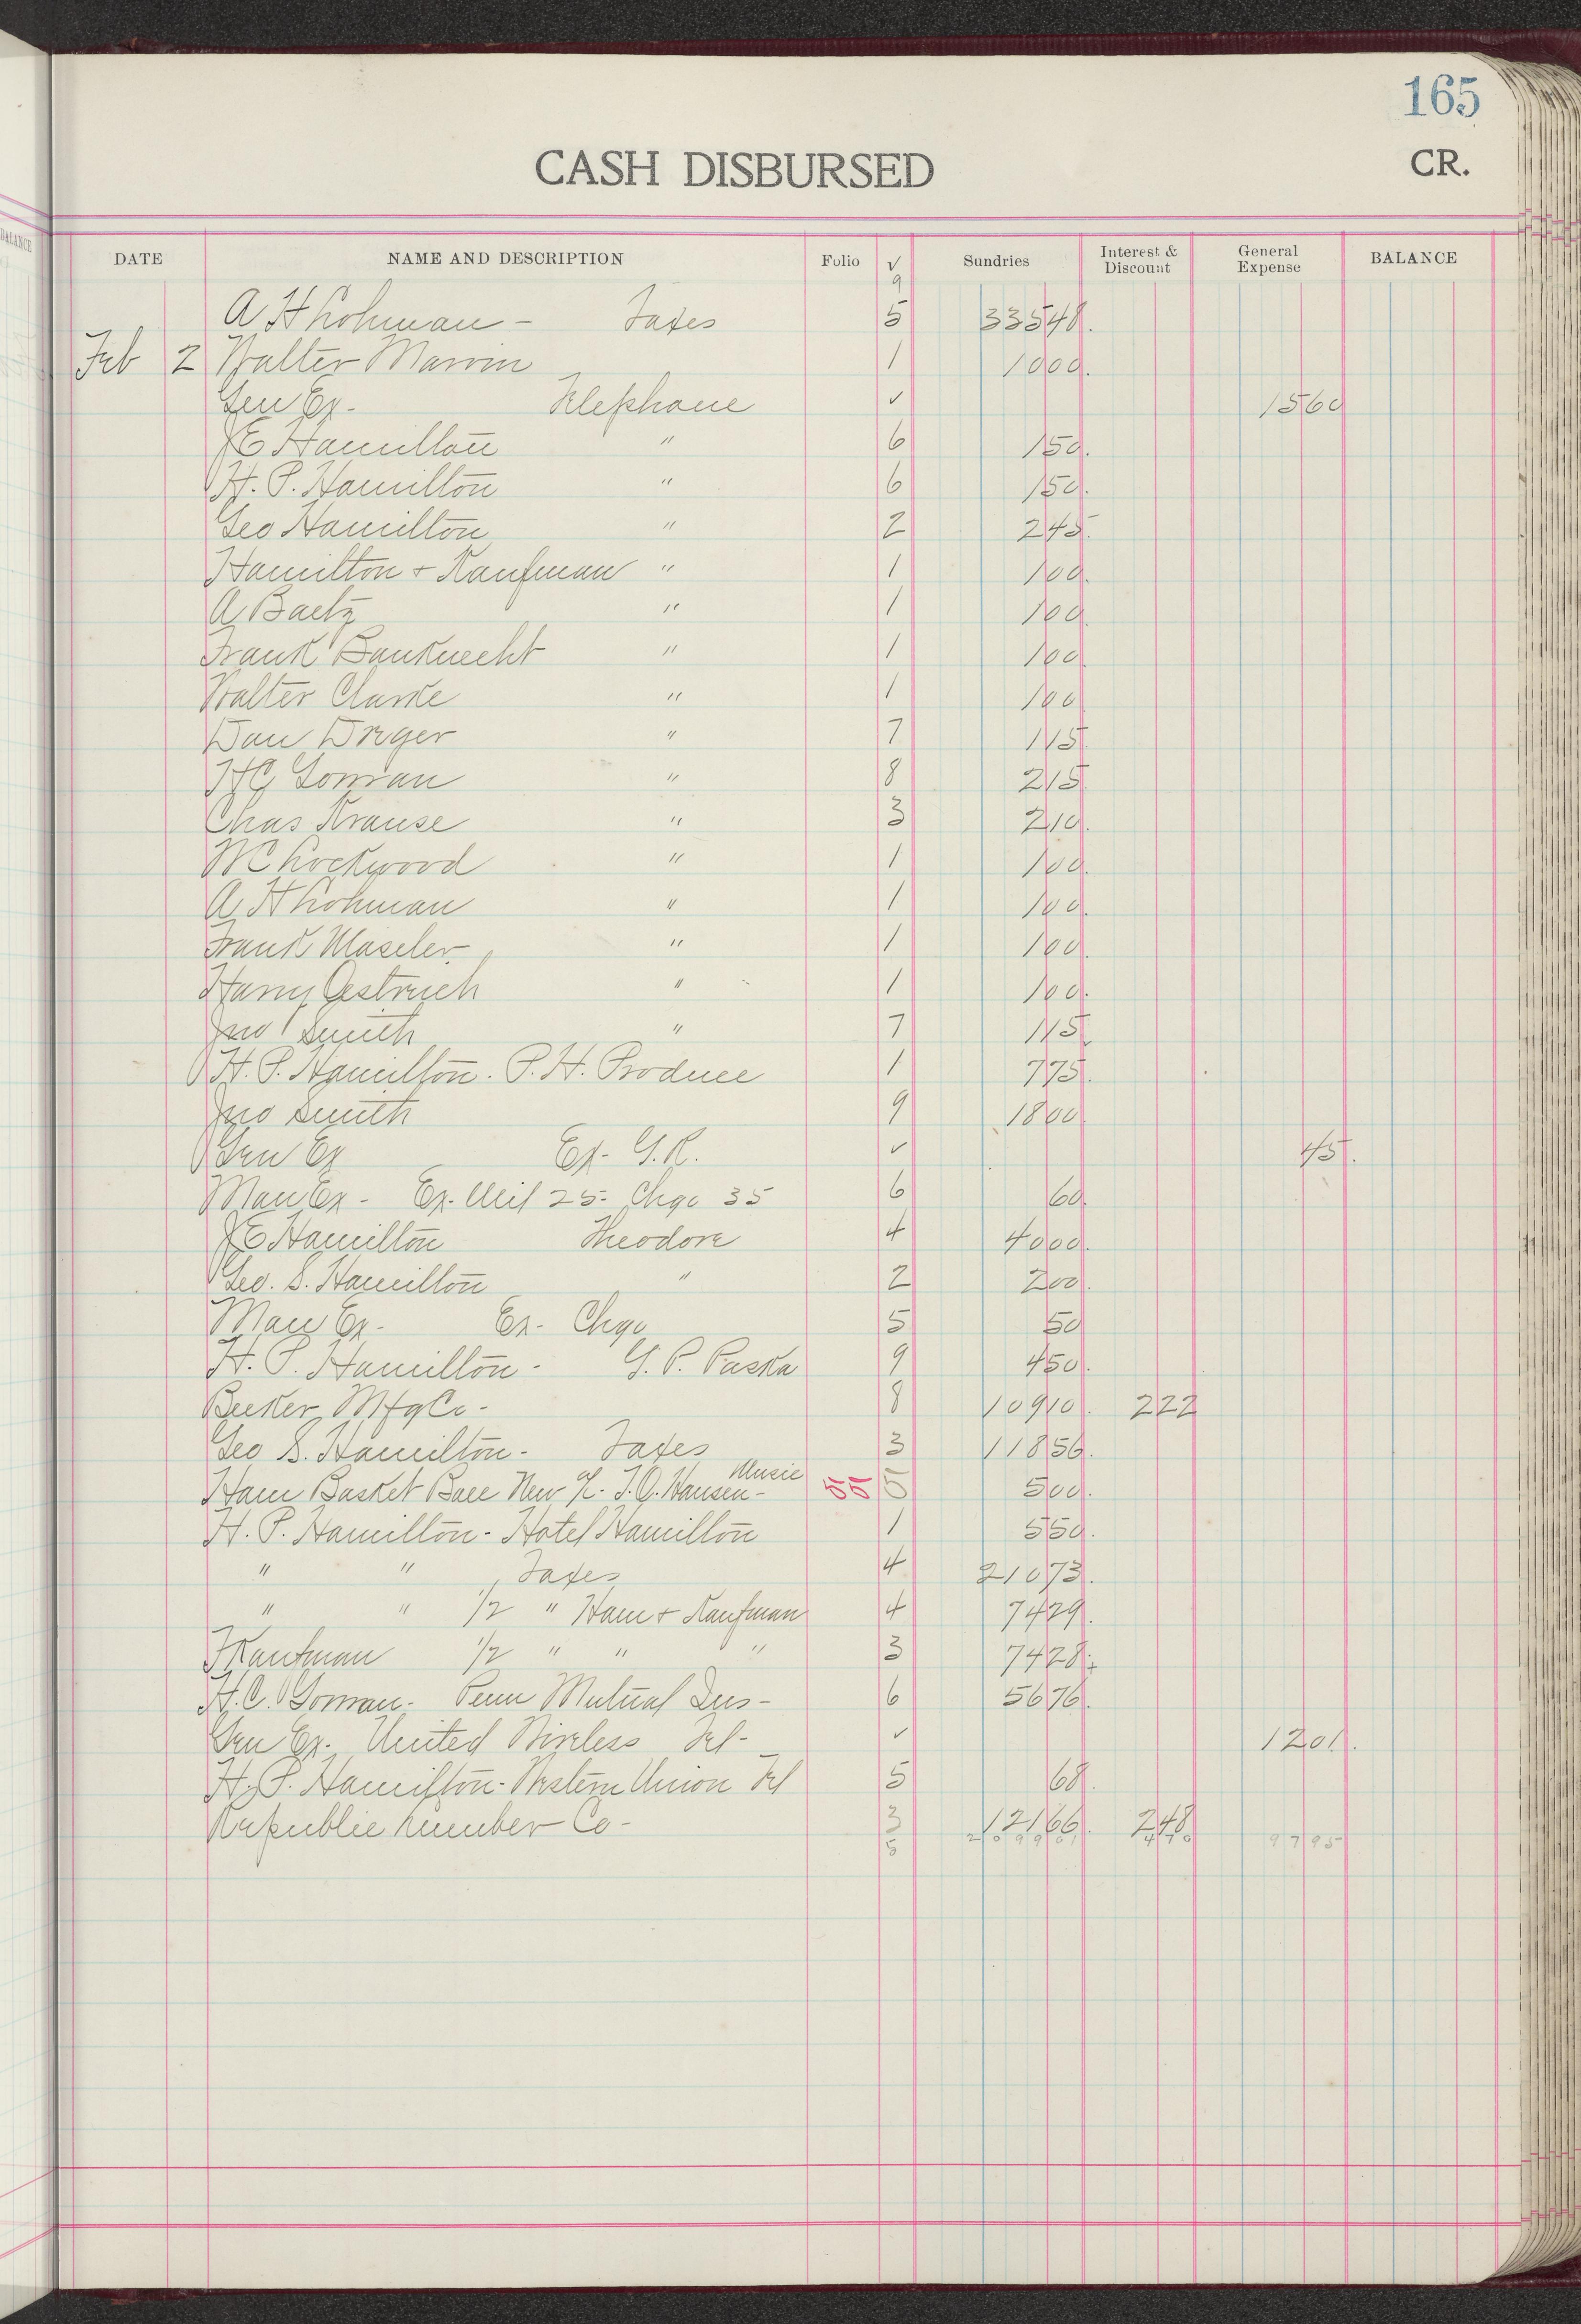 165
CASH DISBURSED CR.
BALANCE
DATE NAME AND DESCRIPTION Folio √ Sundries Interest & Discount General Expense BALANCE
9
A H Lohman - Taxes 5 33548.
Feb 2 Walter Marvin 1 1000.
Gen Ex. Telephone ✓ 1560
J E Hamilton " 6 150.
H. P. Hamilton " 6 150.
Geo Hamilton " 2 245.
Hamilton + Kaufman " 1 100.
A Baetz " 1 100.
Frank Bauknecht " 1 100
Walter Clarke " 1 100
Dan Dreger " 7 115
H C Gowran " 8 215
Chas Krause " 3 210.
W C Lockwood " 1 100.
A H Lohman " 1 100.
Frank Maseler " 1 100.
Harry Oestreich " 1 100.
Jno Smith " 7 115
H. P. Hamilton. P. H. Produce 1 775.
Jno Smith 9 1800
Gen Ex Ex- G. R. ✓ 45.
Man Ex - Ex. Mil 25 - Chgo 35 6 60.
J E Hamilton Theodore 4 4000.
Geo. S. Hamilton " 2 200.
Man Ex - Ex- Chgo 5 50
H. P. Hamilton - G. P. Paska 9 450.
Becker Mfg Co - 8 10910. 222
Geo S. Hamilton - Taxes 3 11856.
Ham Basket Ball New %. T. O. Hansen - Music 55 5 500.
H. P. Hamilton - Hotel Hamilton 1 550.
" " Taxes 4 21073.
" " 1/2 " Ham + Kaufman 4 7429.
J Kaufman 1/2 " " " 3 7428.
H. C. Gowran - Penn Mutual Ins - 6 5676.
Gen Ex. United Wireless Tel - ✓ 1201.
H. P. Hamilton - Western Union Tel 5 68.
Republic Lumber Co - 3 12166. 248
5 209901 470 9795